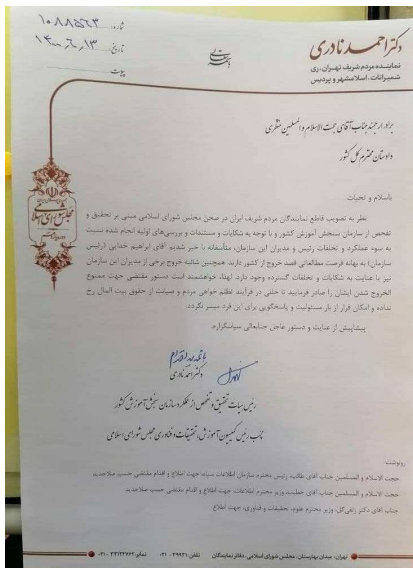 دکتر احمد نادری
نماینده مردم شریف تهران، ری
شمیرانات، اسلامشهر و پردیس
شماره:
تاریخ: ۱۴۰۰,۶,۱۳
پیوست
مجلس شورای اسلامی
برادر ارجمند جناب آقای حجت الاسلام و المسلمین منتظری
دادستان محترم کل کشور
باسلام و تحیات
نظر به تصویب قاطع نمایندگان مردم شریف ایران در صحن مجلس شورای اسلامی مبنی بر تحقیق و
تفحص از سازمان سنجش آموزش کشور و با توجه به شکایات و مستندات و بررسی‌های اولیه انجام شده نسبت
به سوء عملکرد و تخلفات رئیس و مدیران این سازمان، متأسفانه با خبر شدیم آقای ابراهیم خدایی (رئیس
سازمان) به بهانه فرصت مطالعاتی قصد خروج از کشور دارند. همچنین شائبه خروج برخی از مدیران این سازمان
نیز با عنایت به شکایات و تخلفات گسترده وجود دارد. لهذا، خواهشمند است دستور مقتضی جهت ممنوع
الخروج شدن ایشان را صادر فرمایید تا خللی در فرآیند تظلم خواهی مردم و صیانت از حقوق بیت المال رخ
نداده و امکان فرار از بار مسئولیت و پاسخگویی برای این فرد میسر نگردد.
پیشاپیش از عنایت و دستور عاجل جنابعالی سپاسگزارم.
با تقدیم احترام
دکتر احمد نادری
رئیس هیات تحقیق و تفحص از عملکرد سازمان سنجش آموزش کشور
نائب رئیس کمیسیون آموزش، تحقیقات و فناوری مجلس شورای اسلامی
رونوشت
حجت الاسلام و المسلمین جناب آقای طائب، رئیس محترم سازمان اطلاعات سپاه، جهت اطلاع و اقدام مقتضی حسب صلاحدید
حجت الاسلام و المسلمین جناب آقای خطیب، وزیر محترم اطلاعات، جهت اطلاع و اقدام مقتضی حسب صلاحدید
جناب آقای دکتر زلفی‌گل، وزیر محترم علوم، تحقیقات و فناوری، جهت اطلاع
تهران، میدان بهارستان، مجلس شورای اسلامی، دفاتر نمایندگان تلفن: ۳۹۹۳۱ - ۰۲۱ نمابر: